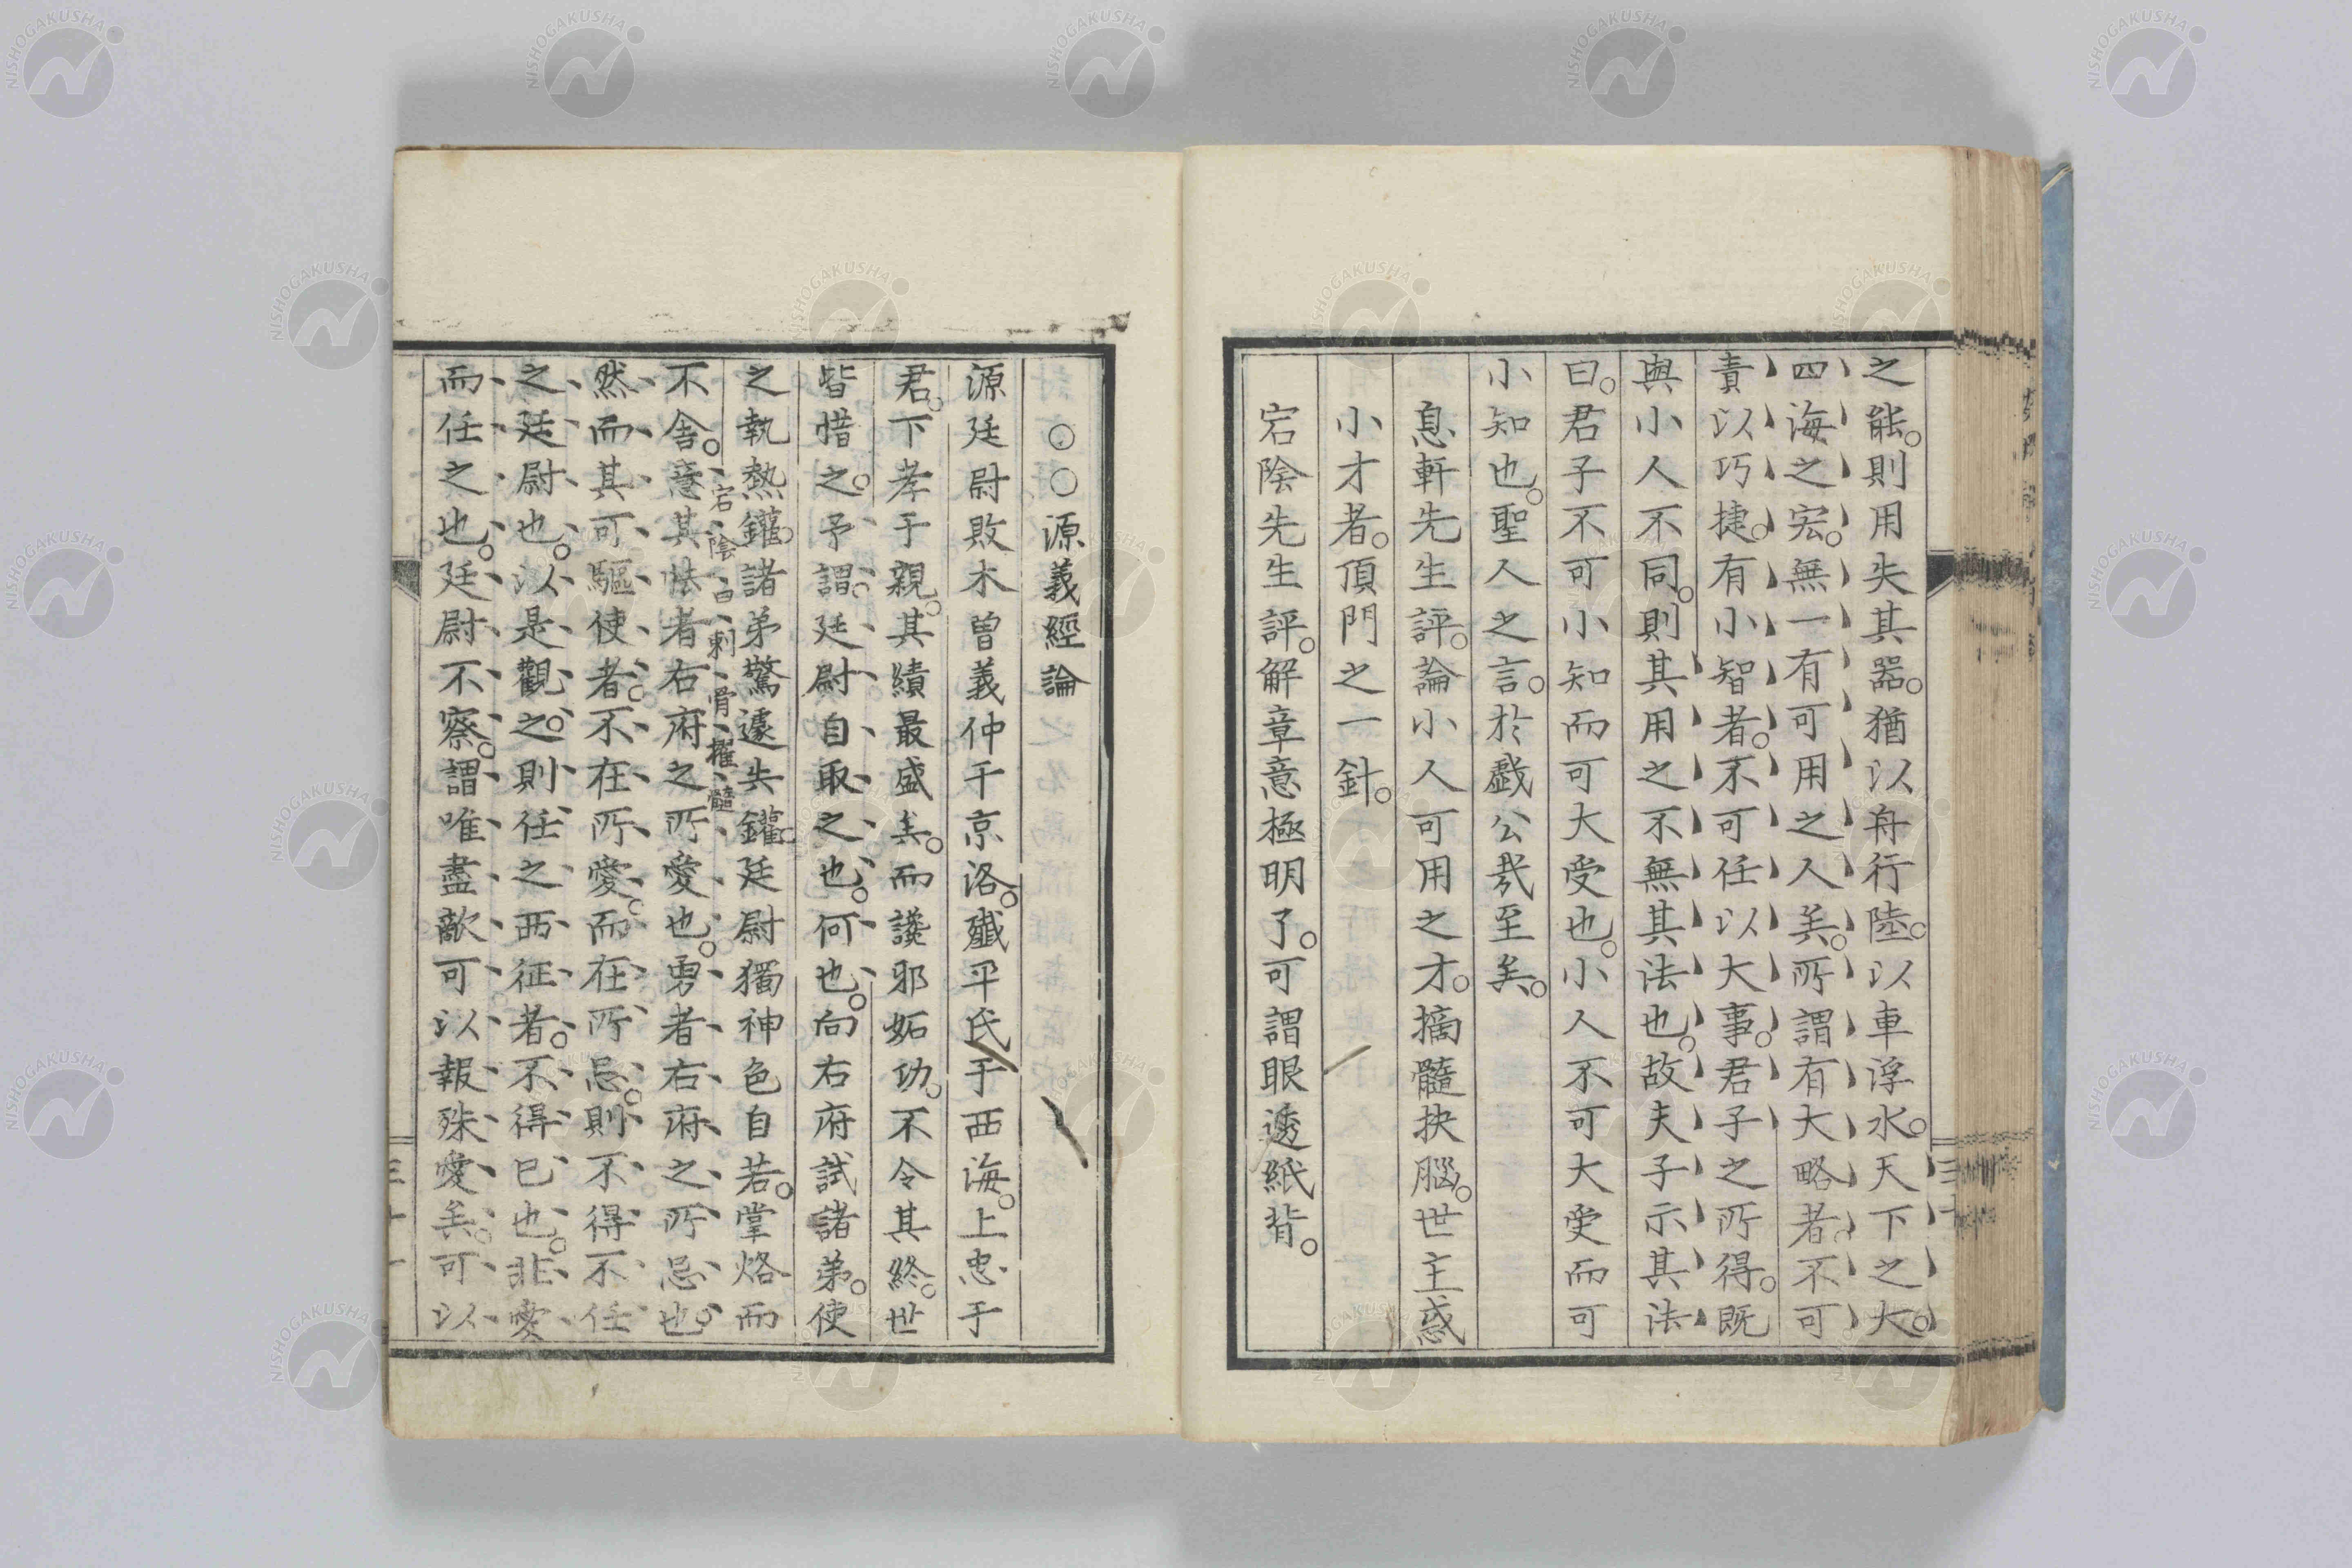 之能。則用失其器。猶以舟行陸。以車浮水。天下之大。
四海之宏。無一有可用之人矣。所謂有大略者。不可
責以巧捷。有小智者。不可任以大事。君子之所得。既
與小人不同。則其用之不無其法也。故夫子示其法
曰。君子不可小知而可大受也。小人不可大受而可
小知也。聖人之言。於戲公哉至矣。
息軒先生評。論小人可用之才。摘髓抉腦。世主惑
小才者。頂門之一針。
宕陰先生評。解章意極明了。可謂眼透紙背。
○○源義經論
源廷尉敗木曽義仲于京洛。殲平氏于西海。上忠于
君。下孝于親。其績最盛矣。而讒邪妬功。不令其終。世
皆惜之。予謂。廷尉自取之也。何也。向右府試諸弟。使
之執熱鑵。諸弟驚遽失鑵。廷尉獨神色自若。掌烙而
宕陰曰刺骨擢髓
不舎。意其怯者右府之所愛也。勇者右府之所忌也。
然而其可驅使者。不在所愛。而在所忌。則不得不任
之廷尉也。以是觀之。則任之西征者。不得已也。非愛
而任之也。廷尉不察。謂唯盡敵可以報殊愛矣。可以
三十一
三十
NISHOGAKUSHA